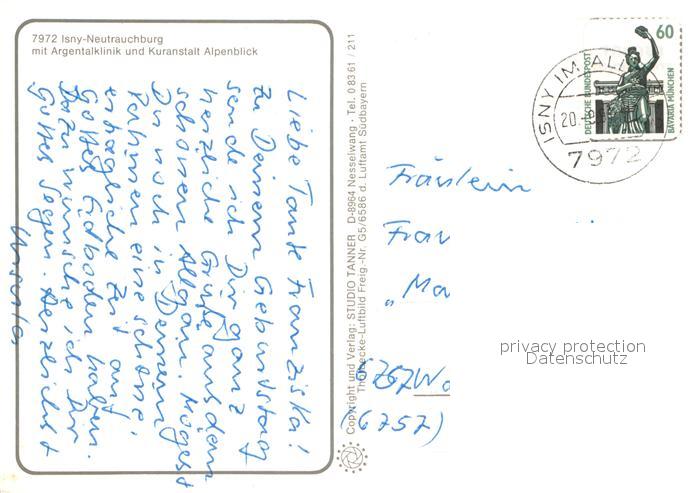 7972 Isny-Neutrauchburg
mit Argentalklinik und Kuranstalt Alpenblick
Liebe Tante Franziska!
zu Deinem Geburtstag
sende ich Dir ganz
herzliche Grüße aus dem
schönen Allgäu. Mögest
Du noch in Deinem
Rahmen eine schöne,
erträgliche Zeit auf
Gottes Erdboden haben.
Dazu wünsche ich Dir
Gottes Segen. Herzlichst
Copyright und Verlag: STUDIO TANNER · D-8964 Nesselwang · Tel. 0 83 61 / 211
Thorbecke-Luftbild Freig.-Nr. G5/6586 d. Luftamt Südbayern
60
DEUTSCHE BUNDESPOST
BAVARIA MÜNCHEN
ISNY IM ALL
20
7972
Fräulein
Frau
„Ma
6767 Wo
(6757)
privacy protection
Datenschutz